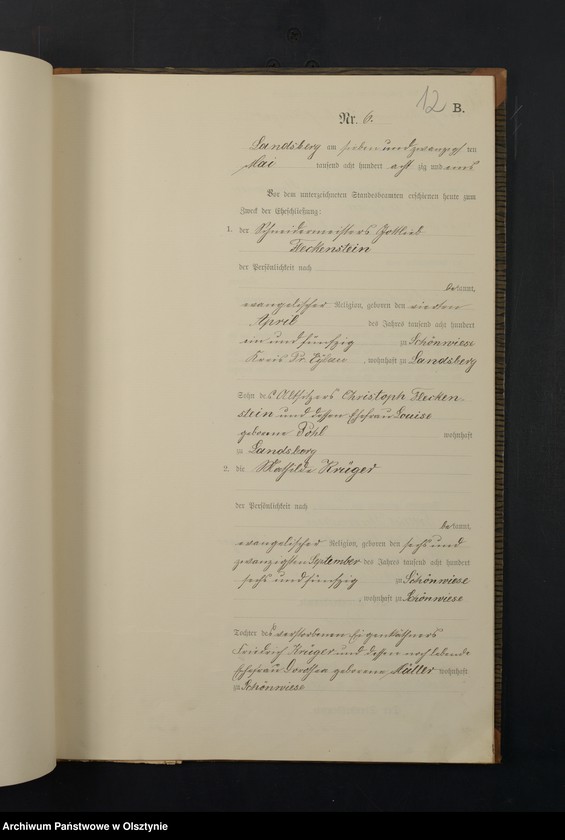 12 B.
Nr. 6.
Landsberg am sieben und zwanzig ten
Mai tausend acht hundert acht zig und eins
Vor dem unterzeichneten Standesbeamten erschienen heute zum
Zweck der Eheschließung:
1. der Schneidermeisters Gottlieb
Fleckenstein
der Persönlichkeit nach
be kannt,
evangelischer Religion, geboren den
April des Jahres tausend acht hundert
ein und fünfzig zu Schönwiese
Kreis Pr. Eylau, wohnhaft zu Landsberg
Sohn des Altsitzers Christoph Flecken-
stein und dessen Ehefrau Louise
geborene Pohl wohnhaft
zu Landsberg
2. die Mathilde Krüger
der Persönlichkeit nach
be kannt,
evangelischer Religion, geboren den sechs und
zwanzigsten September des Jahres tausend acht hundert
sechs und fünfzig zu Schönwiese
, wohnhaft zu Schönwiese
Tochter des verstorbenen Eigenkäthners
Friedrich Krüger und dessen noch lebende
Ehefrau Dorothea geborene Müller wohnhaft
zu Schönwiese
Archiwum Państwowe w Olsztynie